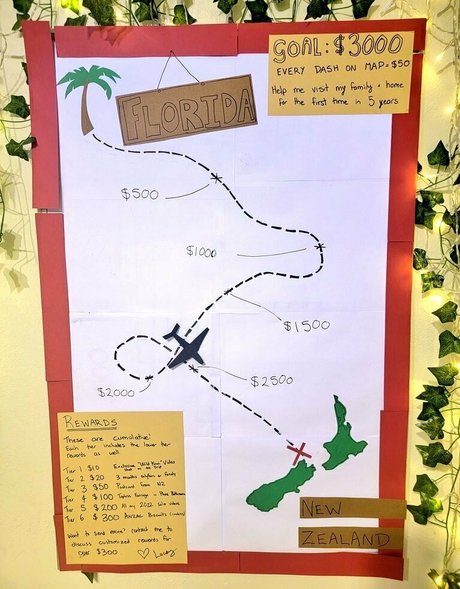 GOAL: $3000
EVERY DASH ON MAP = $50
Help me visit my family + home
for the first time in 5 years
FLORIDA
$500
$1000
$1500
$2000
$2500
REWARDS
These are cumulative!
Each tier includes the lower tier
rewards as well.
Tier 1 $10 Exclusive "Wild Kiwi" Video
Tier 2 $20 3 months
Tier 3 $50 Postcard from NZ
Tier 4 $100
Tier 5 $200 All my 2022 solo videos
Tier 6 $300 ANZAC Biscuits
Want to send more? Contact me to
discuss customized rewards for
over $300.
NEW
ZEALAND